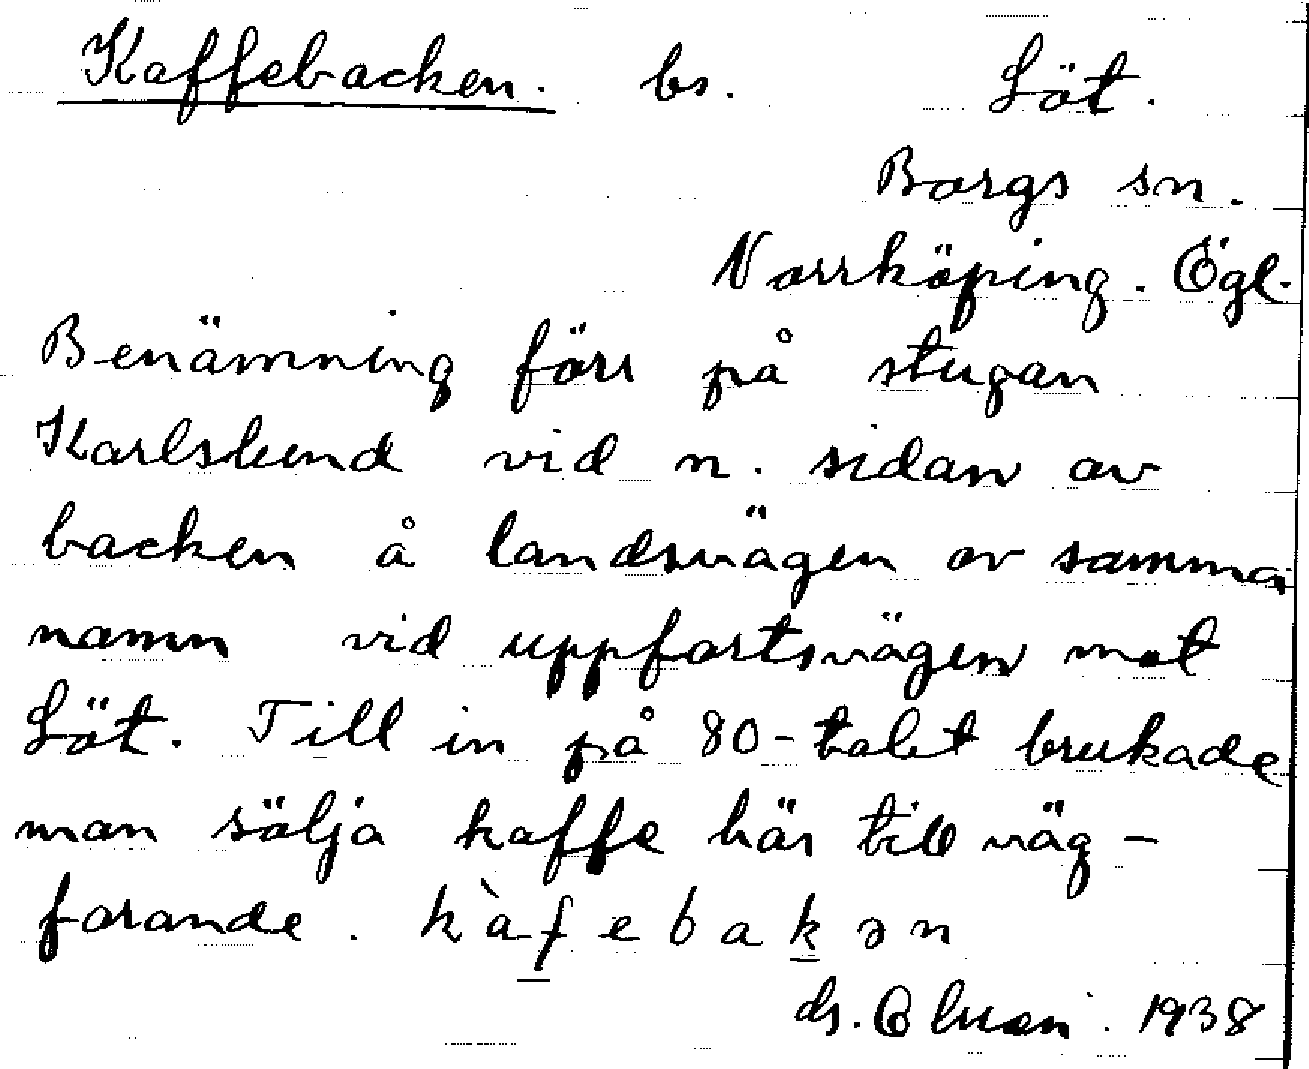 Kaffebacken. bs. Löt.
Borgs sn.
Norrköping. Ögl.
Benämning förr på stugan
Karlslund vid n. sidan av
backen å landsvägen av samma
namn vid uppfartsvägen mot
Löt. Till in på 80-talet brukade
man sälja kaffe här till väg-
farande. kàfebakən
ds. 1938